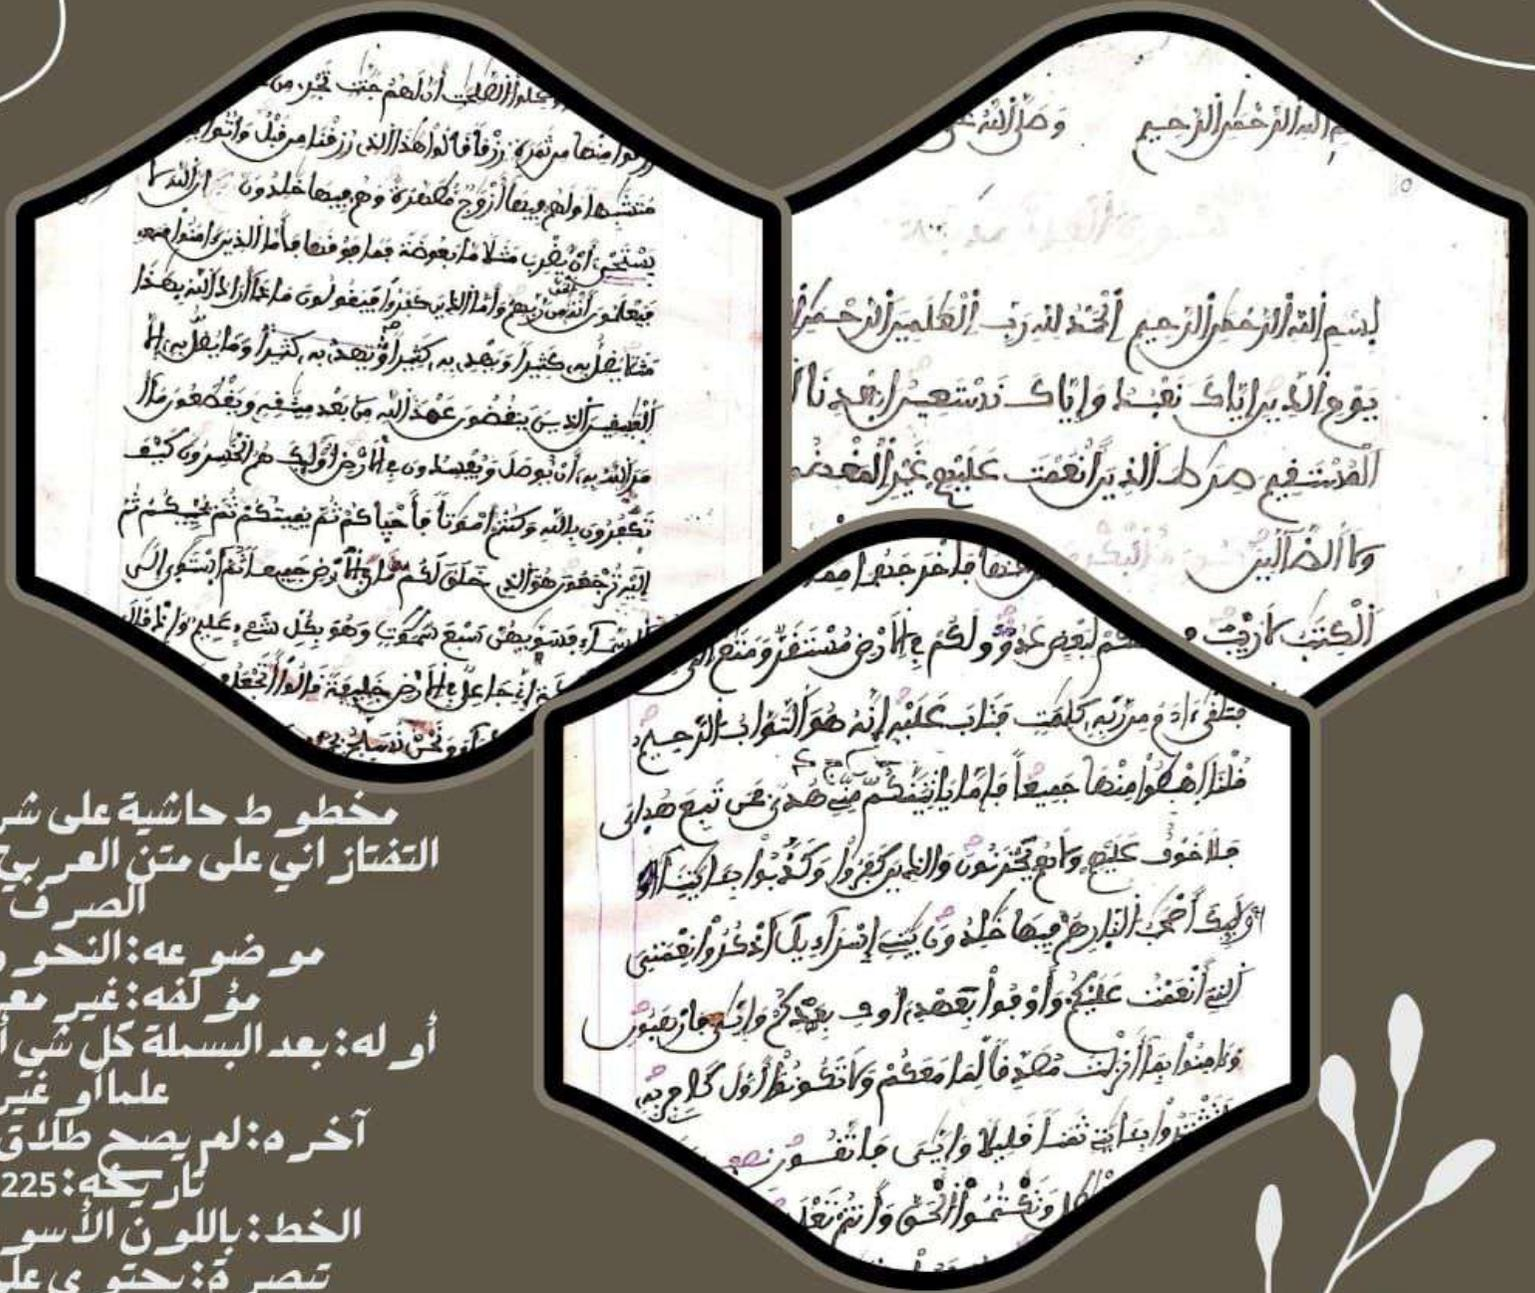 الله الرحمن الرحيم وصلى الله
بسم الله الرحمن الرحيم الحمد لله رب العلمين
يوم الدين إياك نعبد وإياك نستعين اهدنا
المستقيم صرط الذين أنعمت عليهم غير المغضوب
ولا الضالين
الكتب لا ريب
الصلحت أن لهم جنت تجري من
منها من ثمرة رزقا قالوا هذا الذي رزقنا من قبل وأتوا
متشبها ولهم فيها أزوج مطهرة وهم فيها خلدون إن الله لا
يستحي أن يضرب مثلا ما بعوضة فما فوقها فأما الذين ءامنوا
فيعلمون أنه الحق من ربهم وأما الذين كفروا فيقولون ماذا أراد الله بهذا
مثلا يضل به كثيرا ويهدي به كثيرا وما يضل به إلا
الفسقين الذين ينقضون عهد الله من بعد ميثقه ويقطعون ما
أمر الله به أن يوصل ويفسدون في الأرض أولئك هم الخسرون كيف
تكفرون بالله وكنتم أموتا فأحياكم ثم يميتكم ثم يحييكم ثم
إليه ترجعون هو الذي خلق لكم ما في الأرض جميعا ثم استوى إلى
السماء فسويهن سبع سموت وهو بكل شيء عليم وإذ قال
إني جاعل في الأرض خليفة قالوا أتجعل
ونحن نسبح
فأخرجهما مما
لبعض عدو ولكم في الأرض مستقر ومتع إلى
فتلقى ءادم من ربه كلمت فتاب عليه إنه هو التواب الرحيم
قلنا اهبطوا منها جميعا فإما يأتينكم مني هدى فمن تبع هداي
فلا خوف عليهم ولا هم يحزنون والذين كفروا وكذبوا بئايتنا
أولئك أصحب النار هم فيها خلدون يبني إسراءيل اذكروا نعمتي
التي أنعمت عليكم وأوفوا بعهدي أوف بعهدكم وإيي فارهبون
وءامنوا بما أنزلت مصدقا لما معكم ولا تكونوا أول كافر به
تشتروا بئايتي ثمنا قليلا وإيي فاتقون
وتكتموا الحق وأنتم
مخطوط حاشية على شر
التفتازاني على متن العربي
الصرف
موضوعه: النحو و
مؤلفه: غير معر
أوله: بعد البسملة كل شي أ
علما أو غير
آخره: لم يصح طلاق
تاريخه: 225
الخط: باللون الأسو
تبصرة: يحتوي علـ